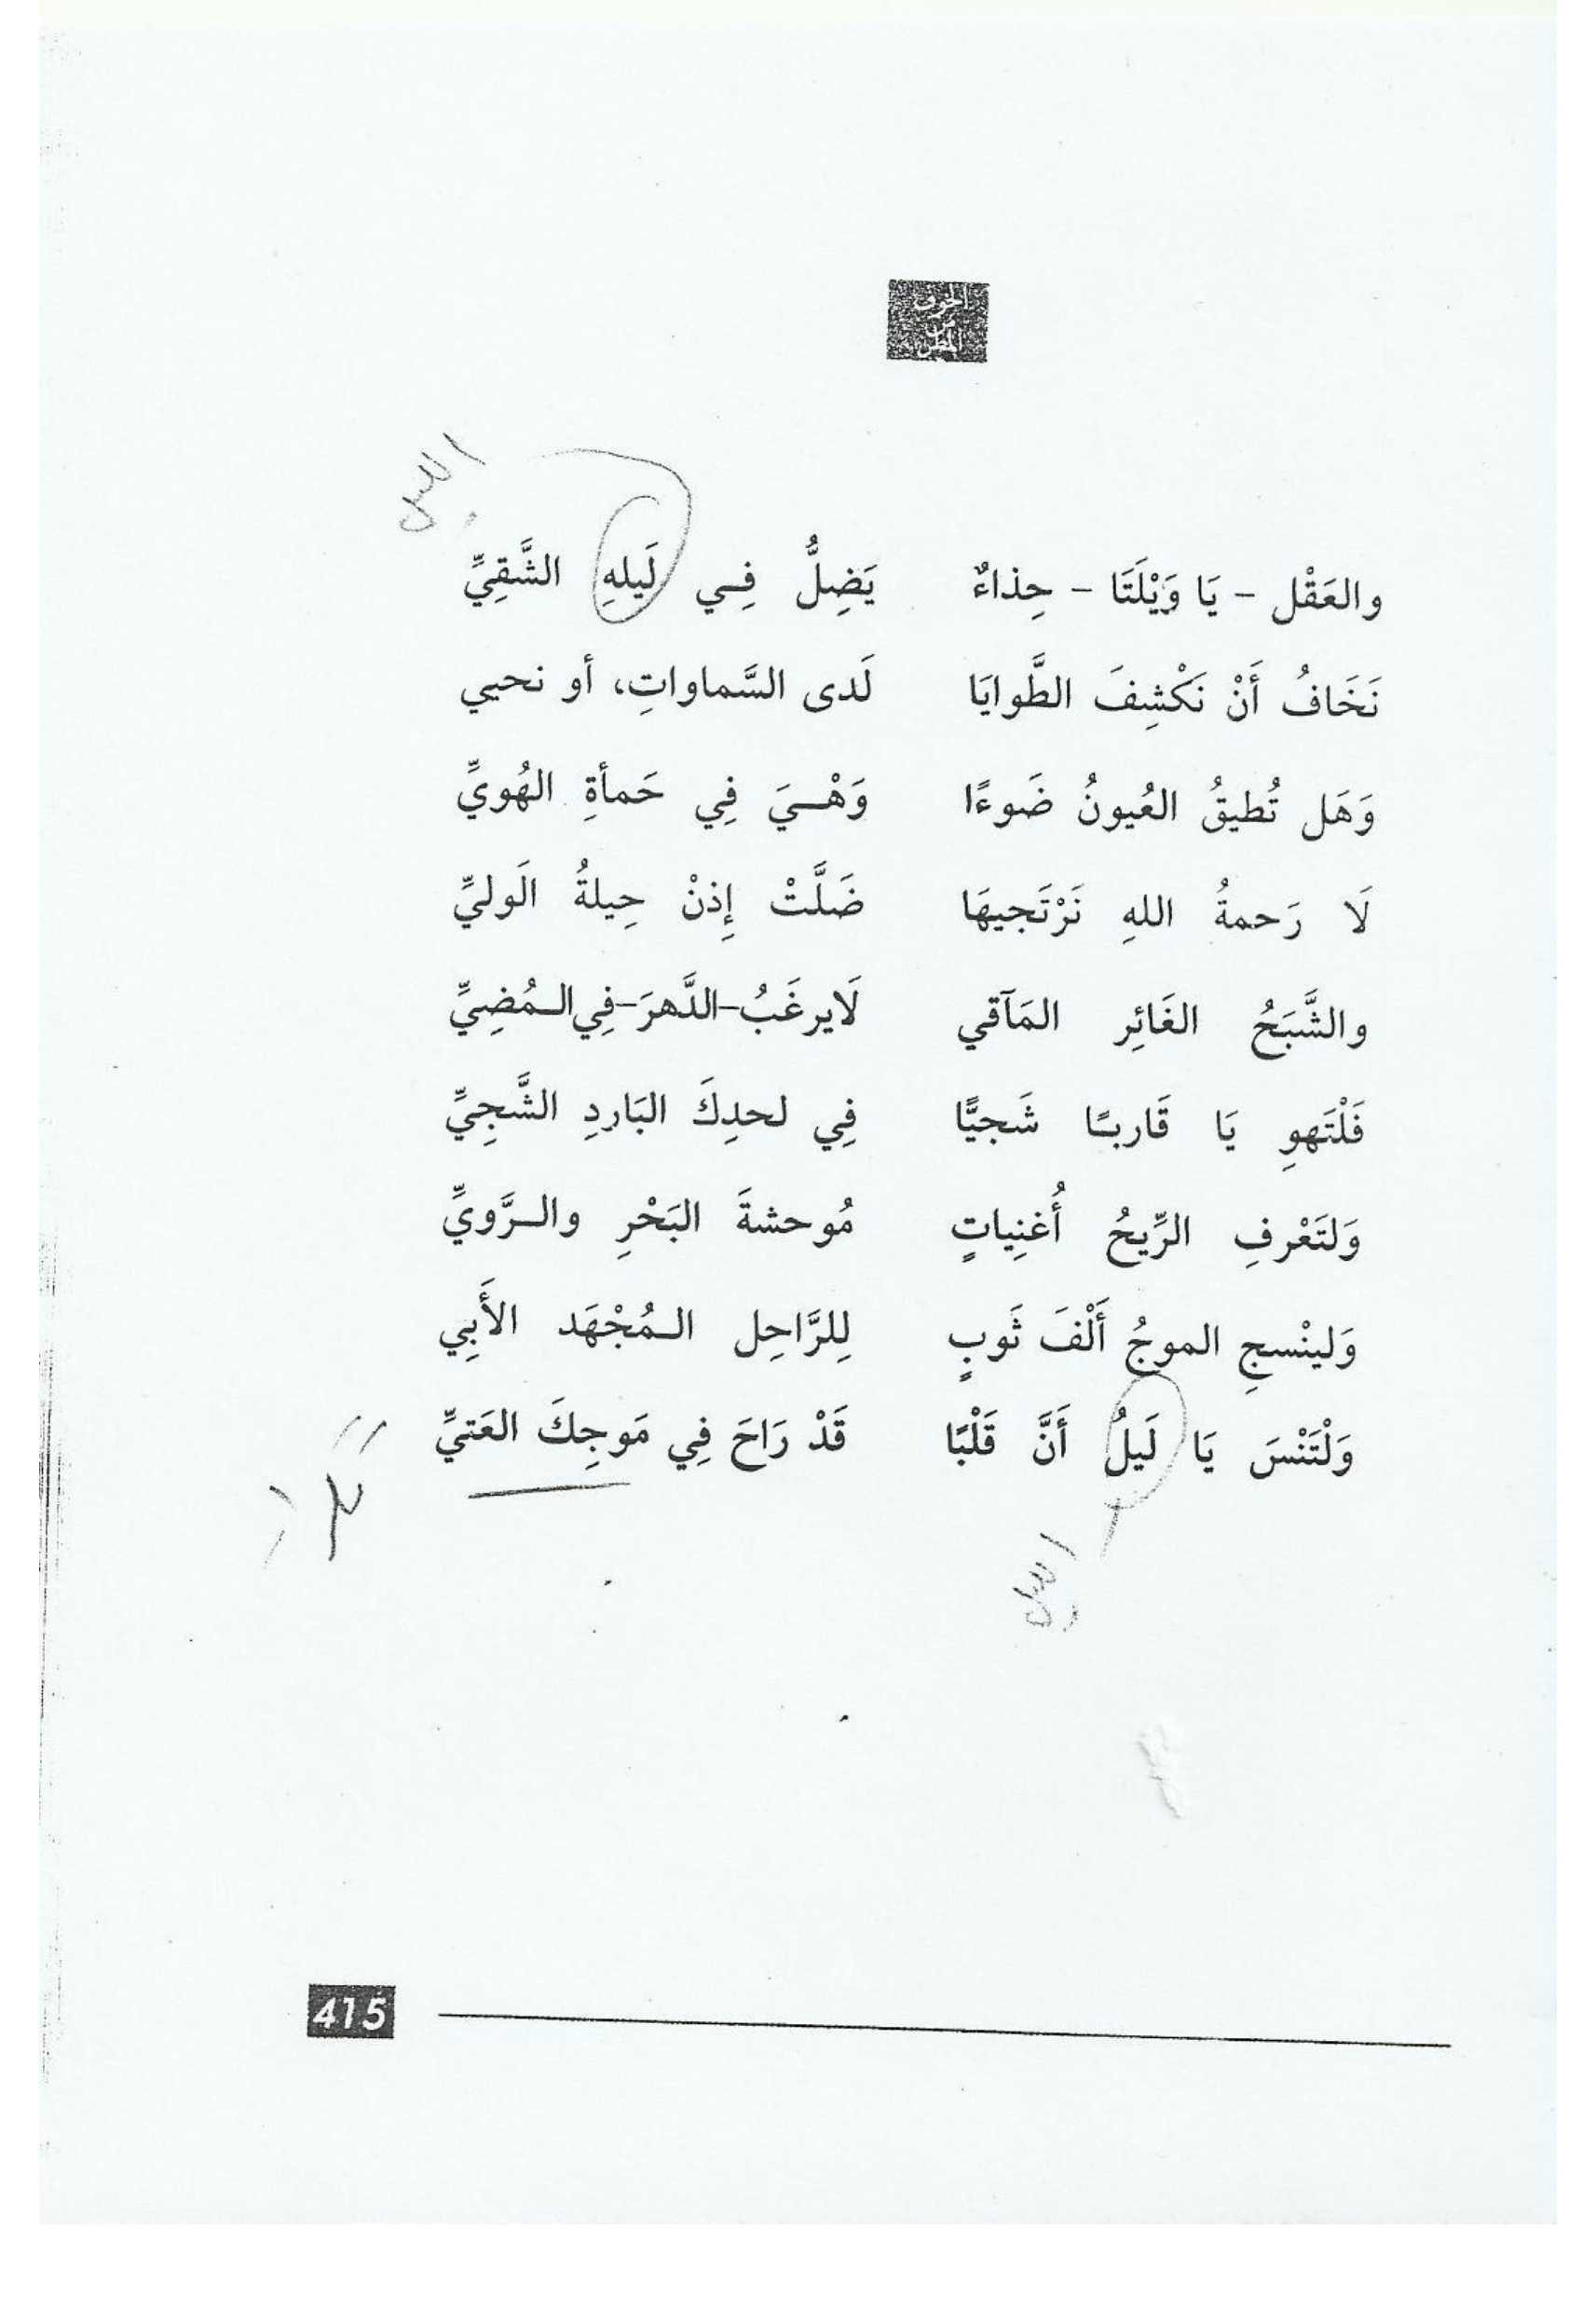 الخوف
من
المطر
الليل
والعَقْل - يَا وَيْلَتَا - حِذاءٌ يَضِلُّ فِي لَيلهِ الشَّقِيِّ
نَخَافُ أَنْ نَكْشِفَ الطَّوايَا لَدى السَّماواتِ، أو نحيي
وَهَل تُطيقُ العُيونُ ضَوءًا وَهْيَ فِي حَمأةِ الهُويِّ
لَا رَحمةُ اللهِ نَرْتَجيهَا ضَلَّتْ إِذنْ حِيلةُ الَوليِّ
والشَّبَحُ الغَائِر المَآقي لَايرغَبُ-الدَّهرَ-فِي المُضِيِّ
فَلْتَهوِ يَا قَاربًا شَجيًّا فِي لحدِكَ البَاردِ الشَّجِيِّ
وَلتَعْرفِ الرِّيحُ أُغنِياتٍ مُوحشةَ البَحْرِ والرَّويِّ
وَلينْسجِ الموجُ أَلْفَ ثَوبٍ لِلرَّاحِل المُجْهَد الأَبِي
وَلْتَنْسَ يَا لَيلُ أَنَّ قَلْبًا قَدْ رَاحَ فِي مَوجِكَ العَتيِّ
الليل
415